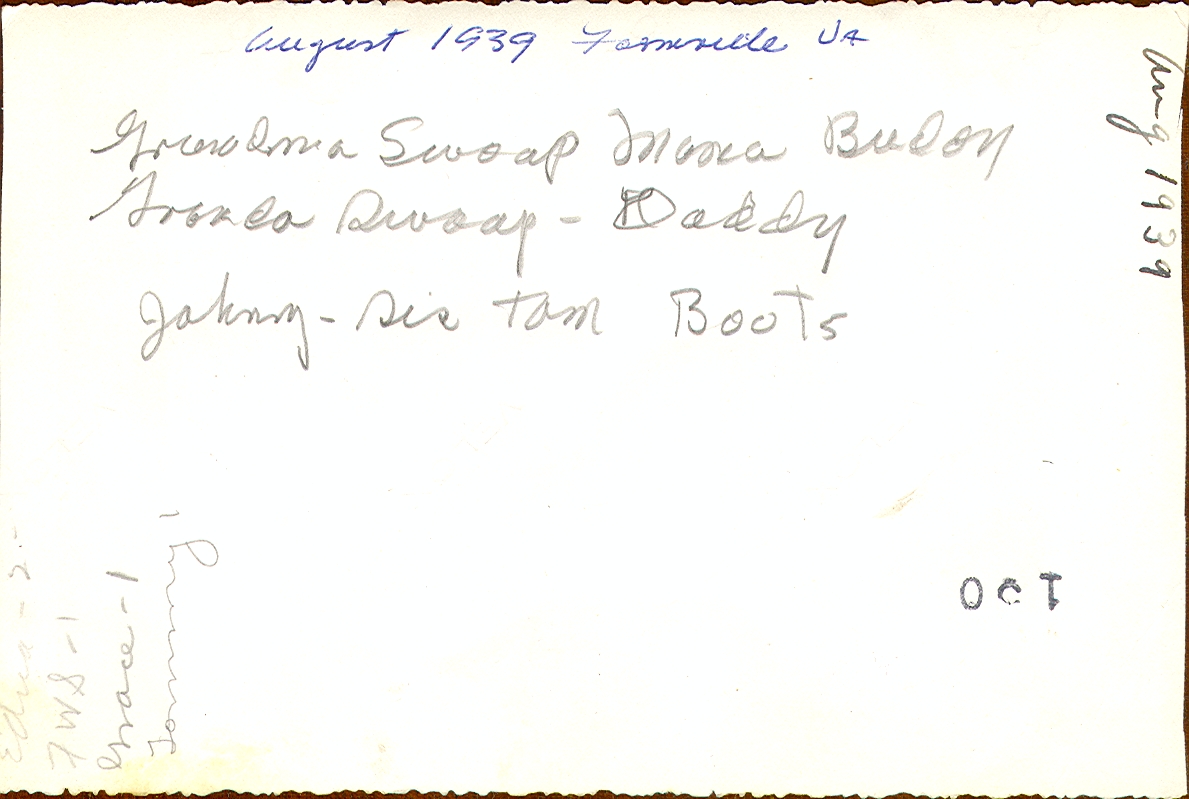 August 1939 Farmville VA
Aug 1939
Grandma Swoap Mama Buddy
Granda Swoap - Daddy
Johnny - Sis Tom Boots
Edna - 2 -
FWS - 1
Grace - 1
Tommy 1